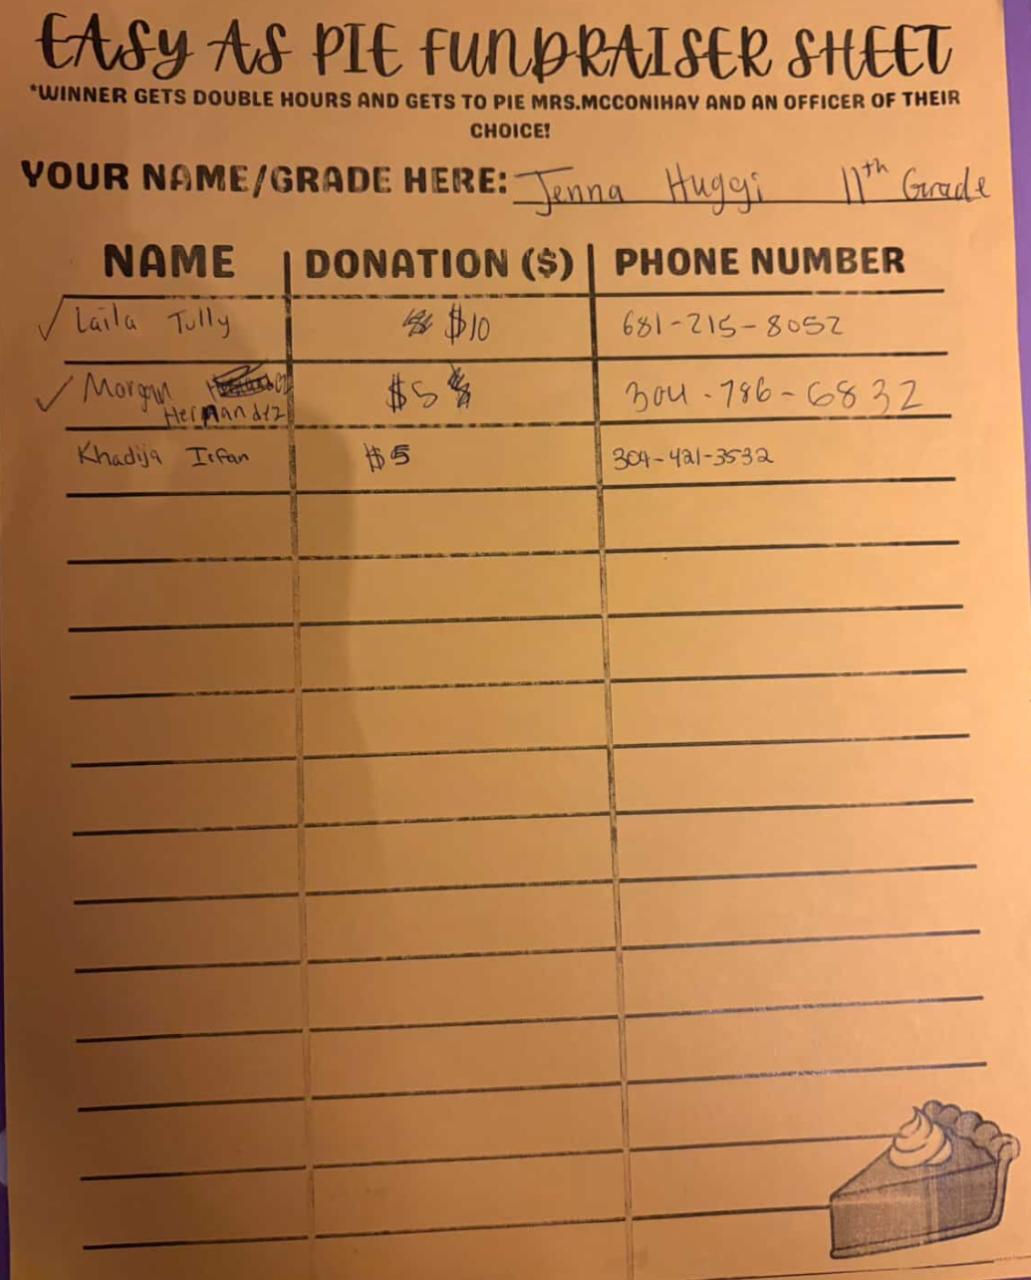 EASY AS PIE FUNDRAISER SHEET
*WINNER GETS DOUBLE HOURS AND GETS TO PIE MRS.MCCONIHAY AND AN OFFICER OF THEIR
CHOICE!
YOUR NAME/GRADE HERE: Jenna Huggi 11th Grade
NAME DONATION ($) PHONE NUMBER
Laila Tully $10 681-215-8052
Morgan $5 304-786-6832
Hernandez
Khadija Irfan $5 304-421-3532